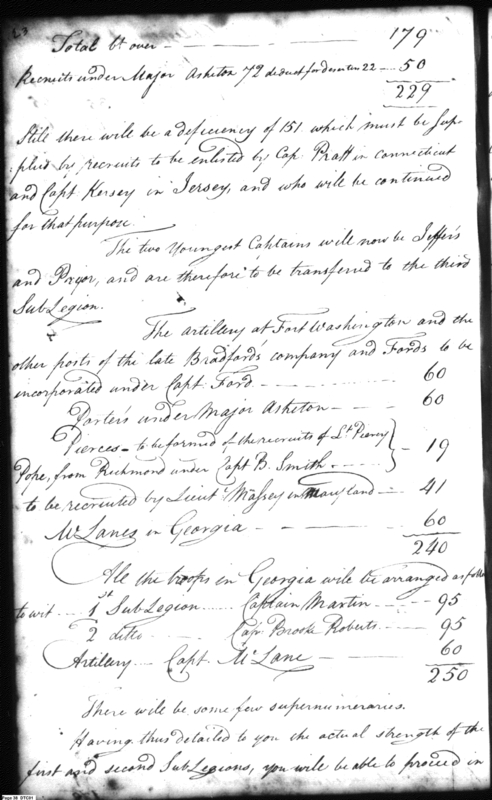 Total bt over - - - 179
Recruits under Major Asheton 72 deduct for desertion 22 - 50
229
Still there will be a deficiency of 151 which must be sup-
:plied by recruits to be enlisted by Cap Pratt in Connecticut
and Capt Kersey in Jersey, and who will be continued
for that purpose.
The two Youngest Captains will now be Jeffers
and Pryor, and are therefore to be transferred to the third
Sub Legion.
The artillery at Fort Washington and the
other posts of the late Bradford's company and Fords to be
incorporated under Capt. Ford - - - 60
Porter's under Major Asheton - - - 60
Pierces - to be formed of the recruits of Lt Piercy
Pope, from Richmond under Capt B. Smith - - - } - 19
to be recruited by Lieut Massey in Maryland - 41
Mc Lanes in Georgia - - - 60
240
All the troops in Georgia will be arranged as follo
to wit .... 1st Sub Legion ...... Captain Martin - - - 95
2 ditto Cap. Brooke Roberts - - - 95
Artillery - - Capt. Mc Lane - - - 60
250
There will be some few supernumeraries.
Having thus detailed to you the actual strength of the
first and second Sub Legions, you will be able to proceed in
Page 38 DTC01